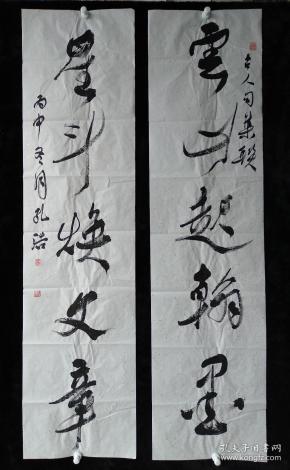 雲山起翰墨
古人句集联
星斗焕文章
丙申冬月孔浩
孔夫子旧书网